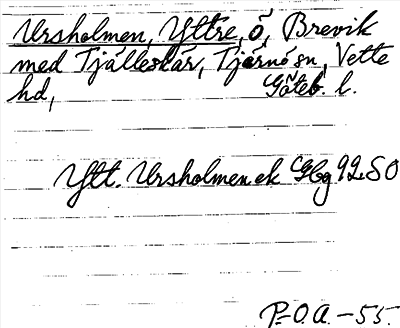 Ursholmen, Yttre, ö, Brevik
med Tjälleskär, Tjärnö sn, Vette
hd, Göteb. l.
Ytt. Ursholmen ek Gbg 92 SO
P.O.A. - 55.